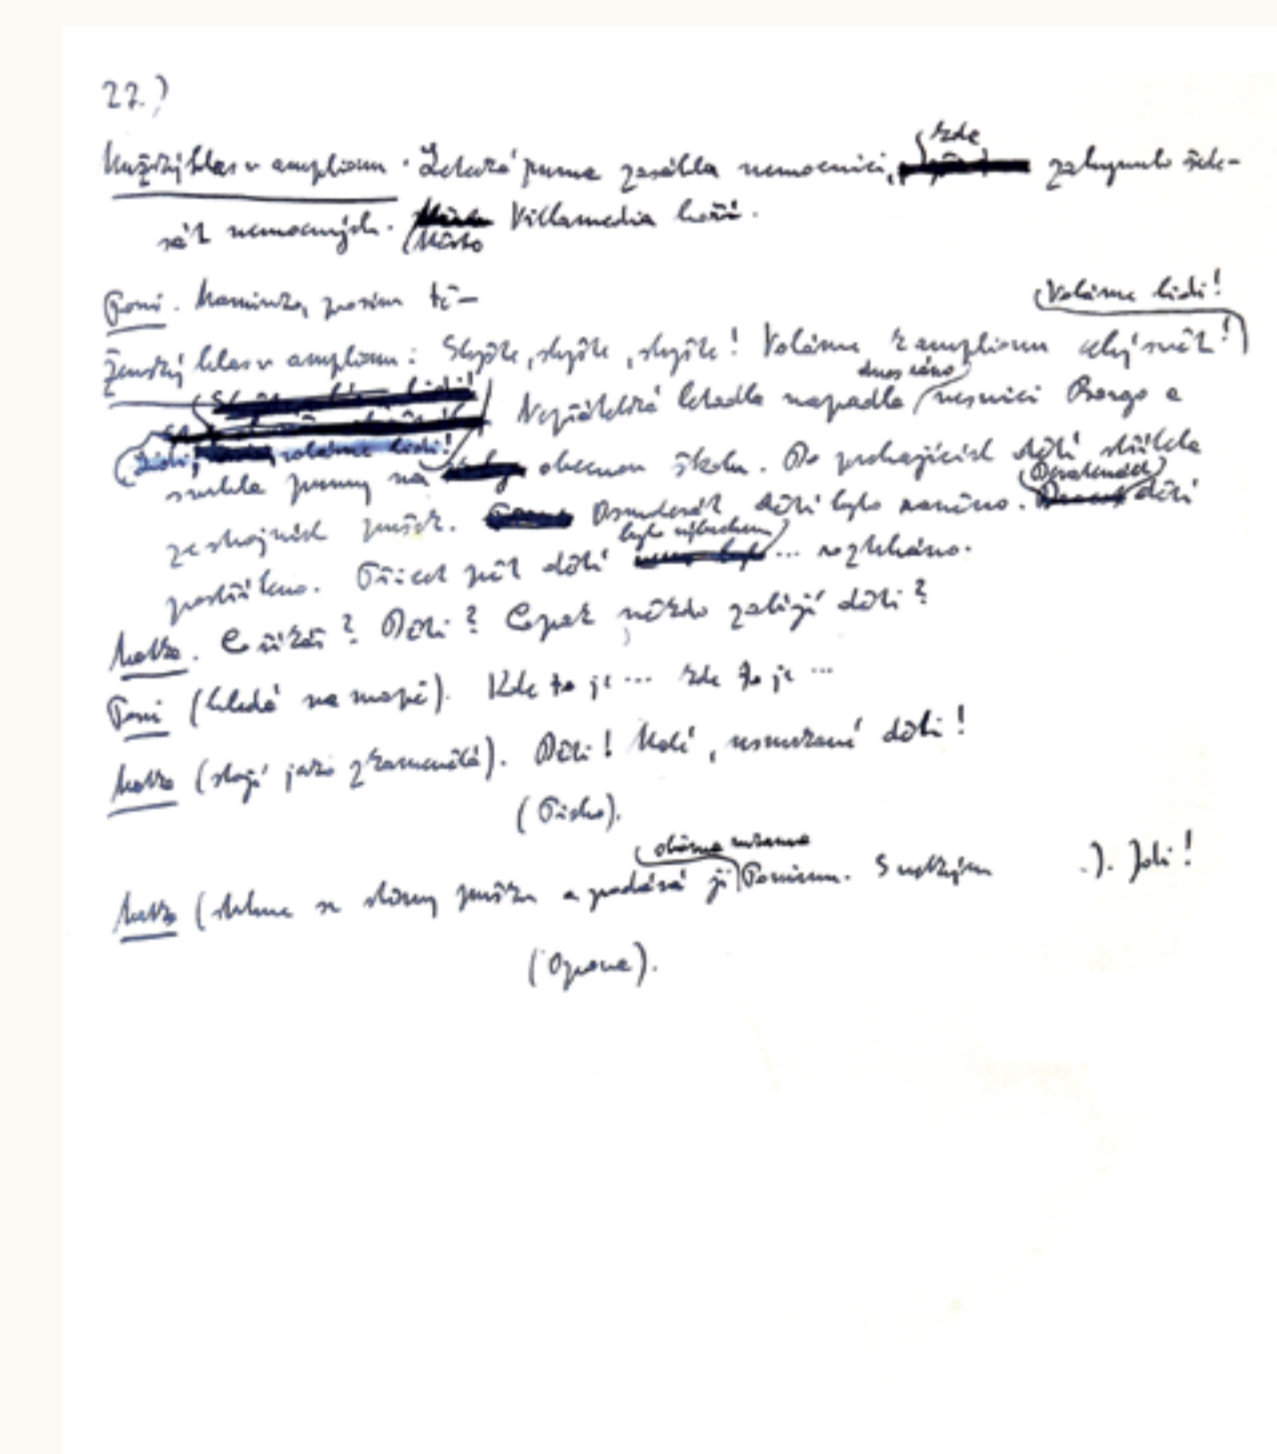 22.)
Mužský hlas v amplionu. Letecká puma zasáhla nemocnici, kde zahynulo šede-
sát nemocných. Město Villamedia hoří.
Toni. Maminko, prosím tě—
Ženský hlas v amplionu: Slyšte, slyšte, slyšte! Voláme k amplionu celý svět! Voláme lidi!
Nepřátelská letadla napadla dnes ráno vesnici Borgo a
Lidi, voláme lidi!
svrhla pumy na obecnou školu. Do prchajících dětí střílela
ze strojních pušek. Osmdesát dětí bylo raněno. Devatenáct dětí
postříleno. Třicet pět dětí bylo výbuchem ... roztrháno.
Matka. Co říkáš? Děti? Copak někdo zabíjí děti?
Toni (hledá na mapě). Kde to je ... kde to je ...
Matka (stojí jako zkamenělá). Děti! Malé, usmrkané děti!
(Ticho).
Matka (strhne se stěny pušku a podává ji oběma rukama Tonimu. S velkým ). Jdi!
(Opona).